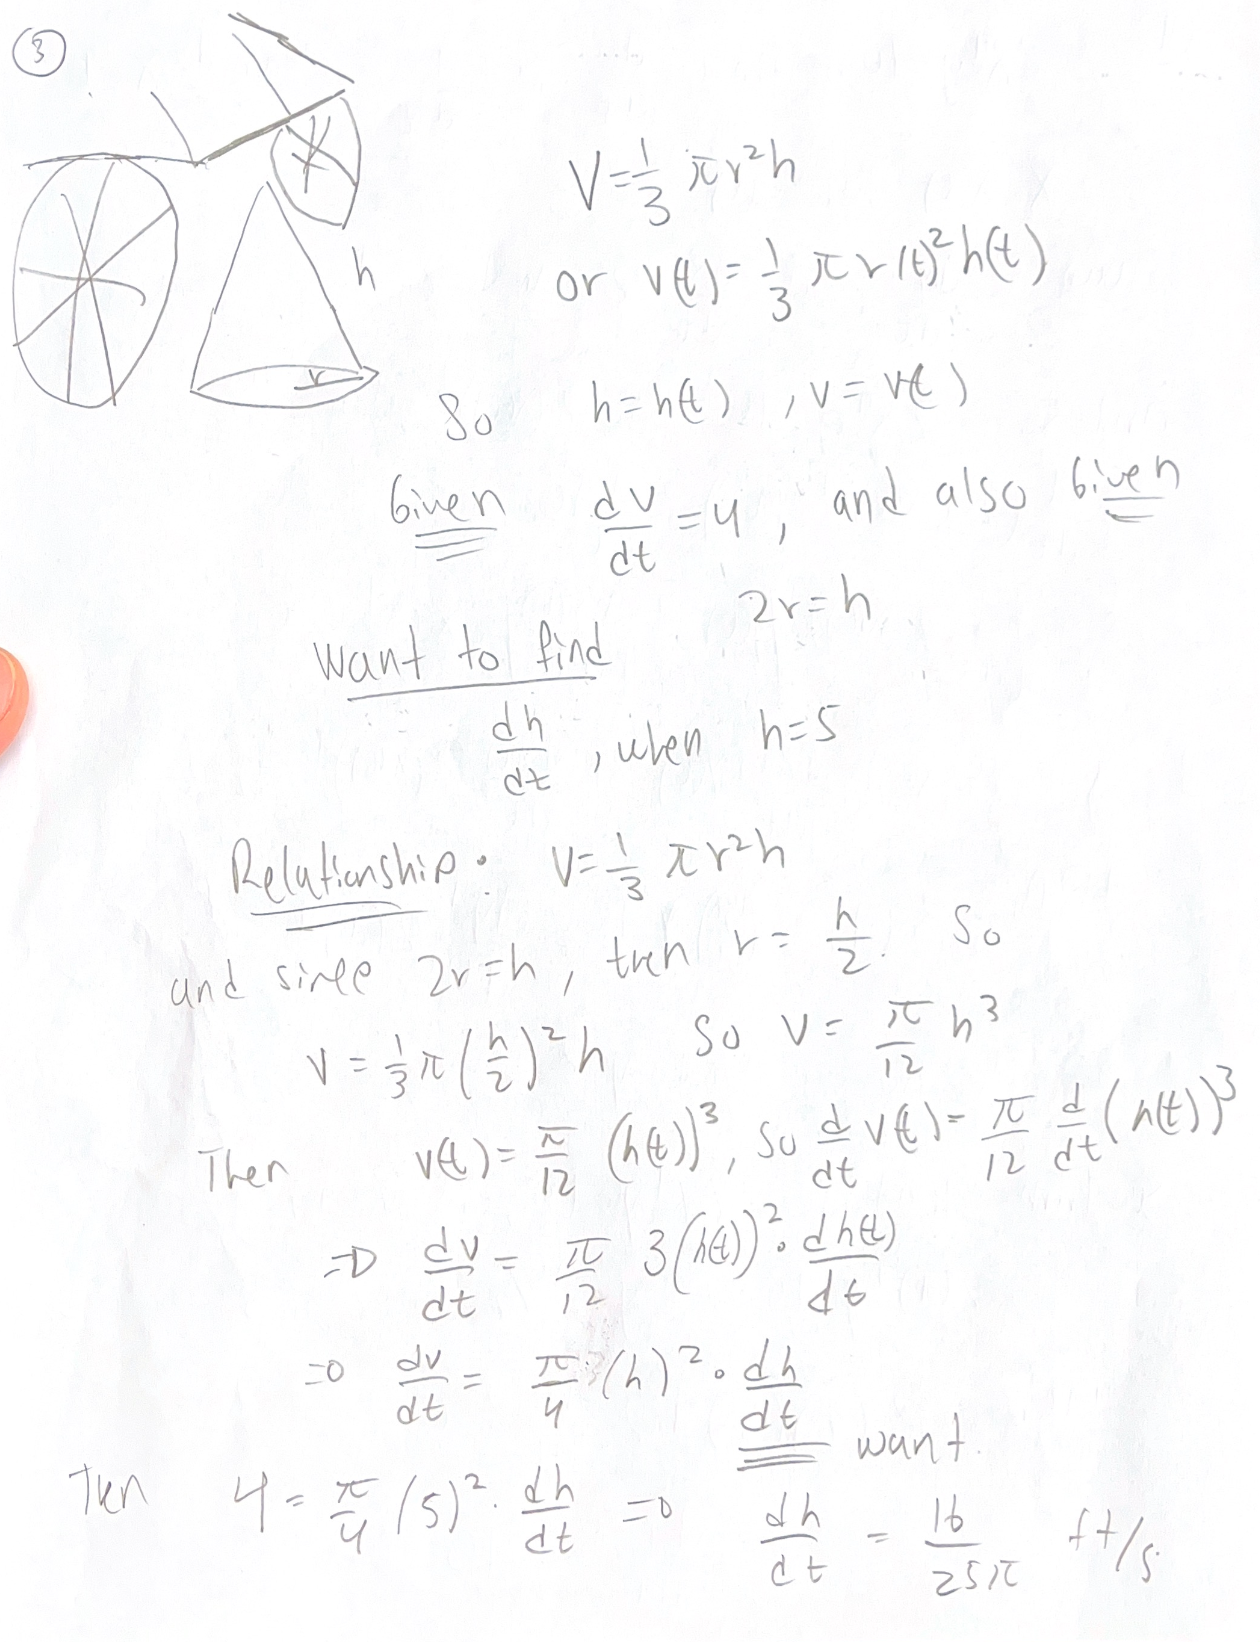 3
V=1/3 πr²h
or v(t)=1/3 πr(t)²h(t)
h
r
So h=h(t), v=v(t)
Given dv/dt=4, and also Given
2r=h
want to find
dh/dt, when h=5
Relationship: V=1/3 πr²h
and since 2r=h, then r=h/2. So
V=1/3π(h/2)²h So V=π/12 h³
Then v(t)=π/12 (h(t))³, so d/dt v(t)=π/12 d/dt(h(t))³
⇒ dv/dt=π/12 3(h(t))²·dh(t)/dt
⇒ dv/dt=π/4 (h)²·dh/dt want.
Then 4=π/4 (5)²·dh/dt ⇒ dh/dt=16/25π ft/s.